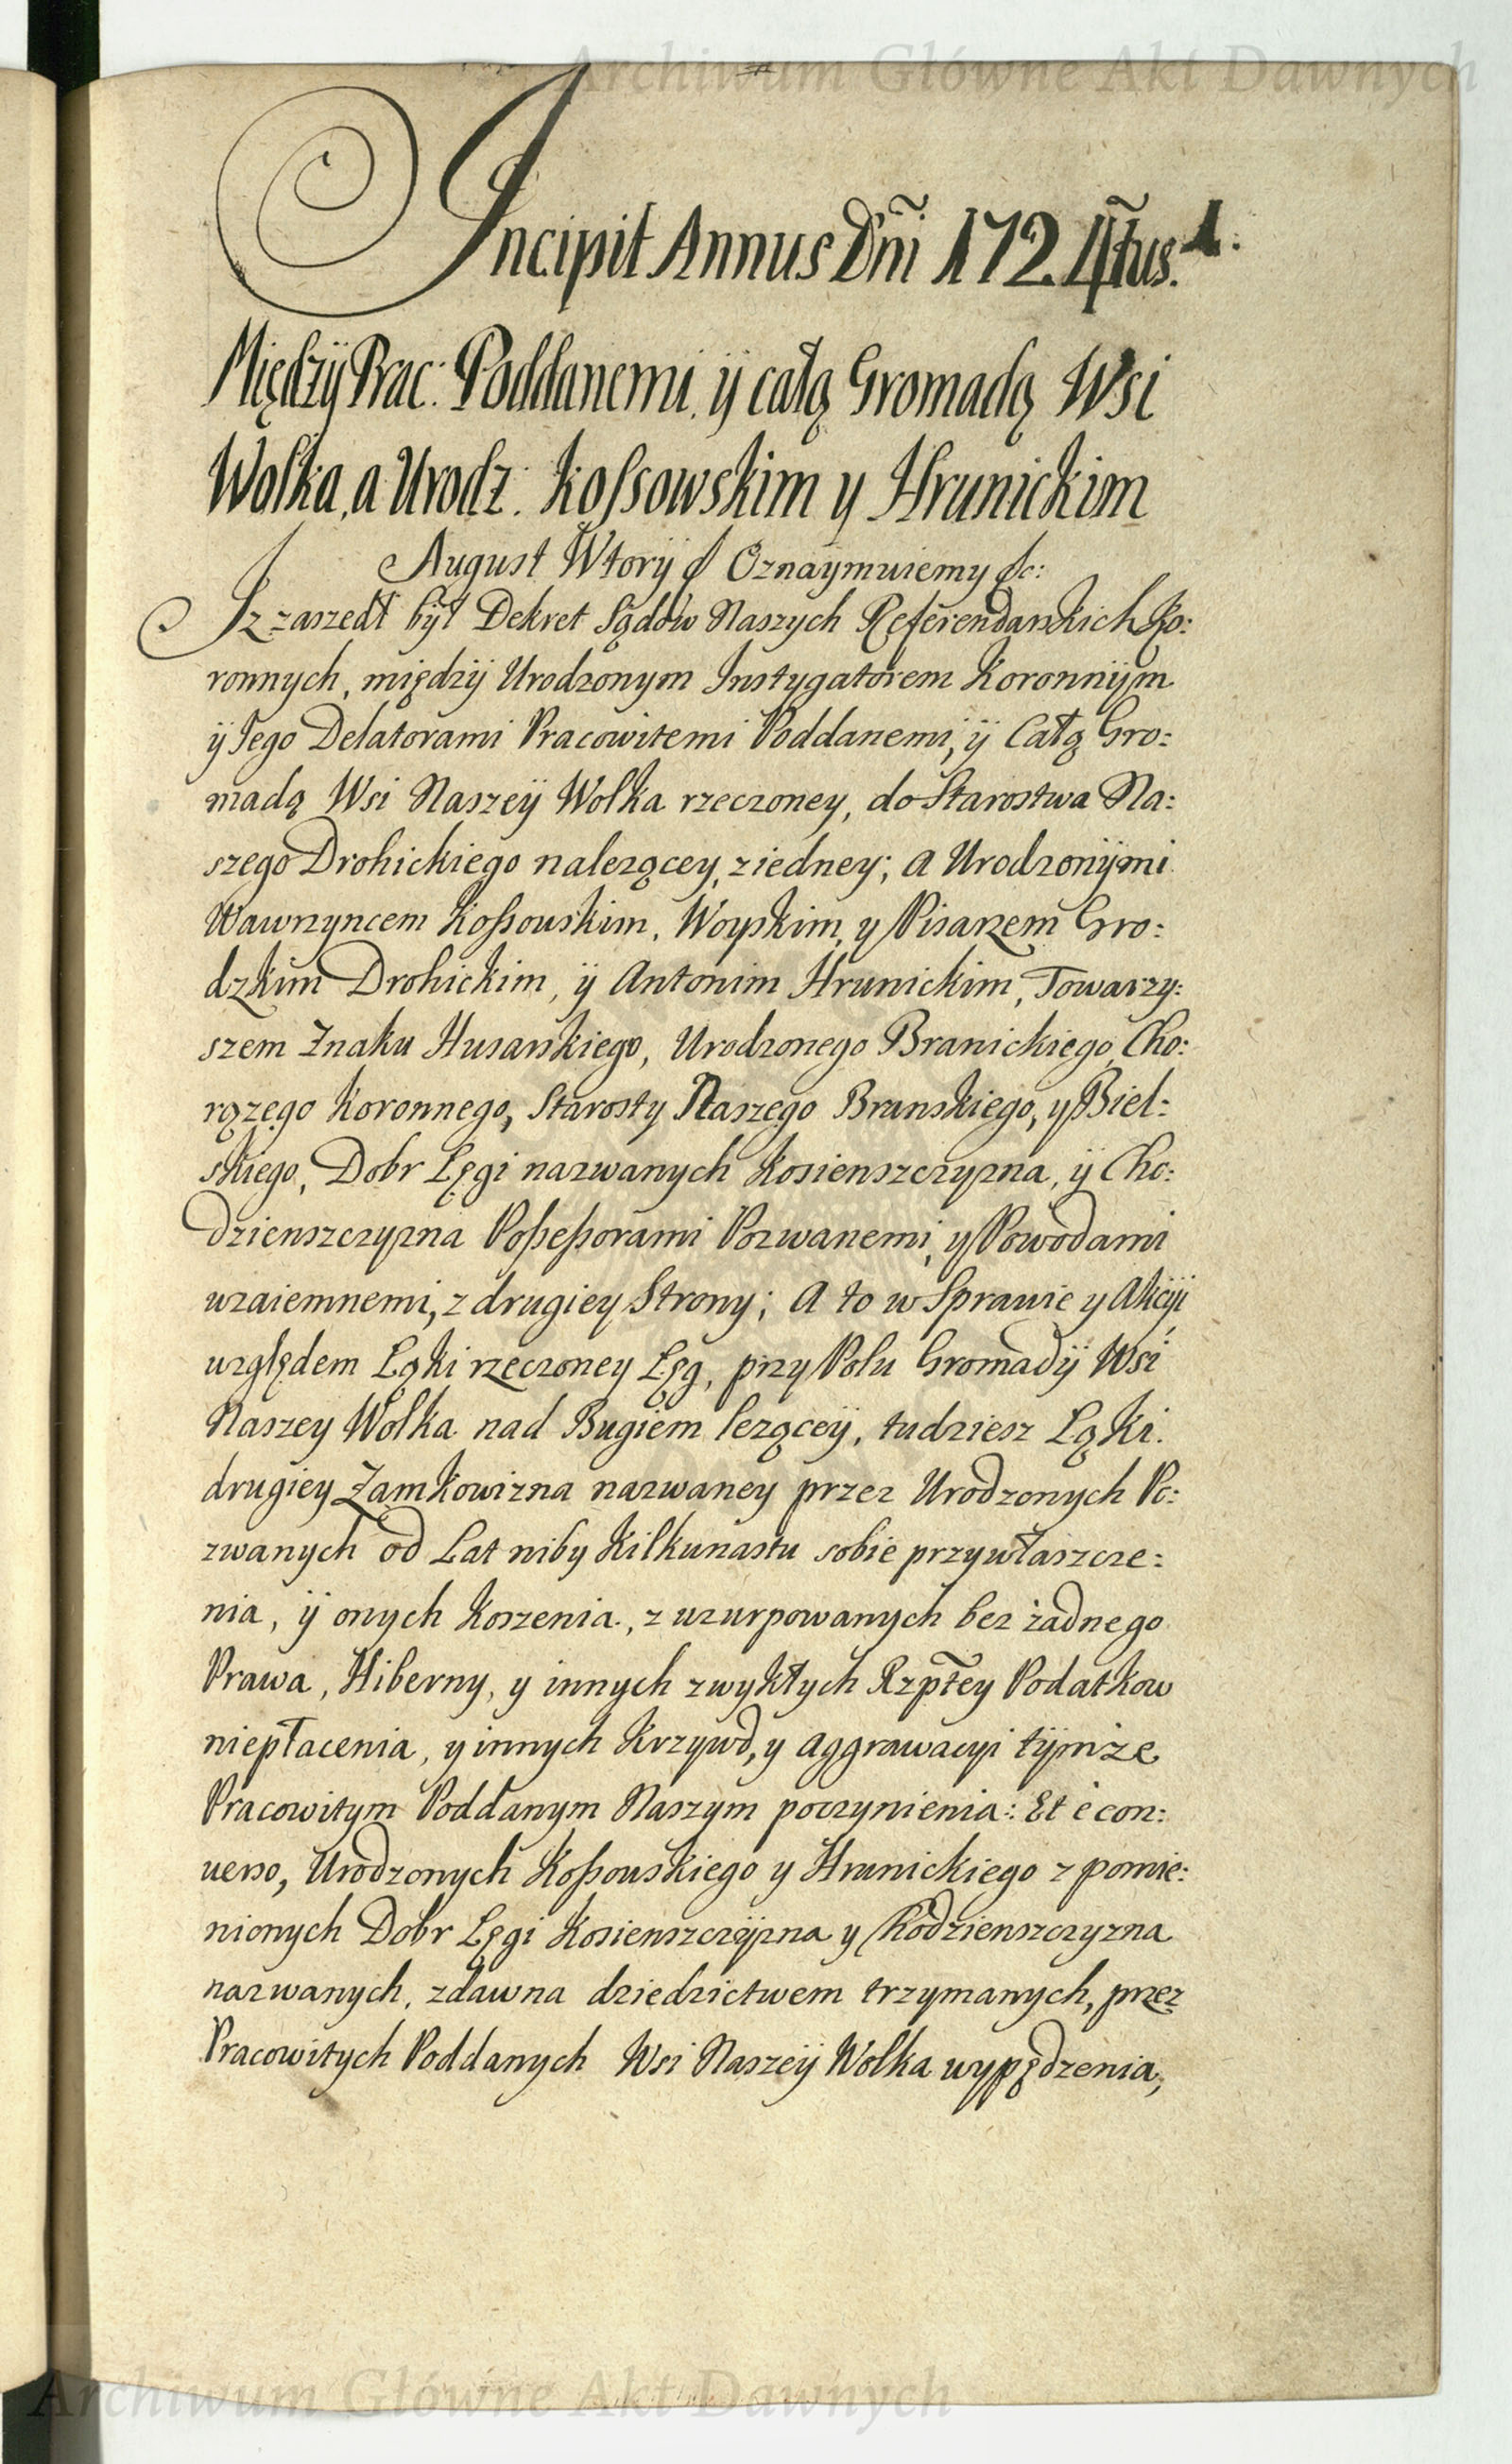 Archiwum Główne Akt Dawnych
Incipit Annus Dni 1724tus. 1.
Między Prac: Poddanemi, ÿ całą Gromadą Wsi
Wolka, a Urodz: Kossowskim y Hrunickim
August Wtorÿ & Oznaymuiemy &c:
Iz zaszedł był Dekret Sądow Naszych Referendarskich Ko:
ronnych, międzÿ Urodzonym Instygatorem Koronnÿm
ÿ Jego Delatorami Pracowitemi Poddanemi, ÿ Całą Gro:
madą Wsi Naszeÿ Wolka rzeczoney, do Starostwa Na:
szego Drohickiego nalezącey, z iedney; a Urodzonÿmi
Wawrzyncem Kossouskim, Woyskim, y Pisarzem Gro:
dzkim Drohickim, ÿ Antonim Hrunickim, Towarzy:
szem Znaku Husarskiego, Urodzonego Branickiego, Cho:
rązęgo Koronnego, Starosty Naszego Branskiego, y Biel:
skiego, Dobr Lęgi nazwanych Kosienszczyzna, ÿ Cho:
dzienszczyzna Possessorami Pozwanemi, y Powodami
wzaiemnemi, z drugiey Strony; A to w Sprawie y Akcÿi
względem Ląki rzeczoney Lęg, przy Polu Gromadÿ Wsi
Naszey Wolka nad Bugiem lezącey, tudziesz Ląki
drugiey Zamkowizna nazwaney przez Urodzonych Po:
zwanych od Lat niby kilkunastu sobie przywłaszcze:
nia, ÿ onych Koszenia, z uzurpowanych bez żadnego
Prawa, Hiberny, y innych zwykłych Rzpłey Podatkow
niepłacenia, y innych Krzywd, y aggrawacyi tÿmże
Pracowitym Poddanym Naszym poczynienia: Et è con:
uerso, Urodzonych Kossouskiego y Hrunickiego z pomie:
nionych Dobr Lęgi Kosienszczÿzna y Chodzienszczyzna
nazwanych, zdawna dziedzictwem trzymanych, przez
Pracowitych Poddanych Wsi Naszeÿ Wolka wypędzenia,
Archiwum Główne Akt Dawnych